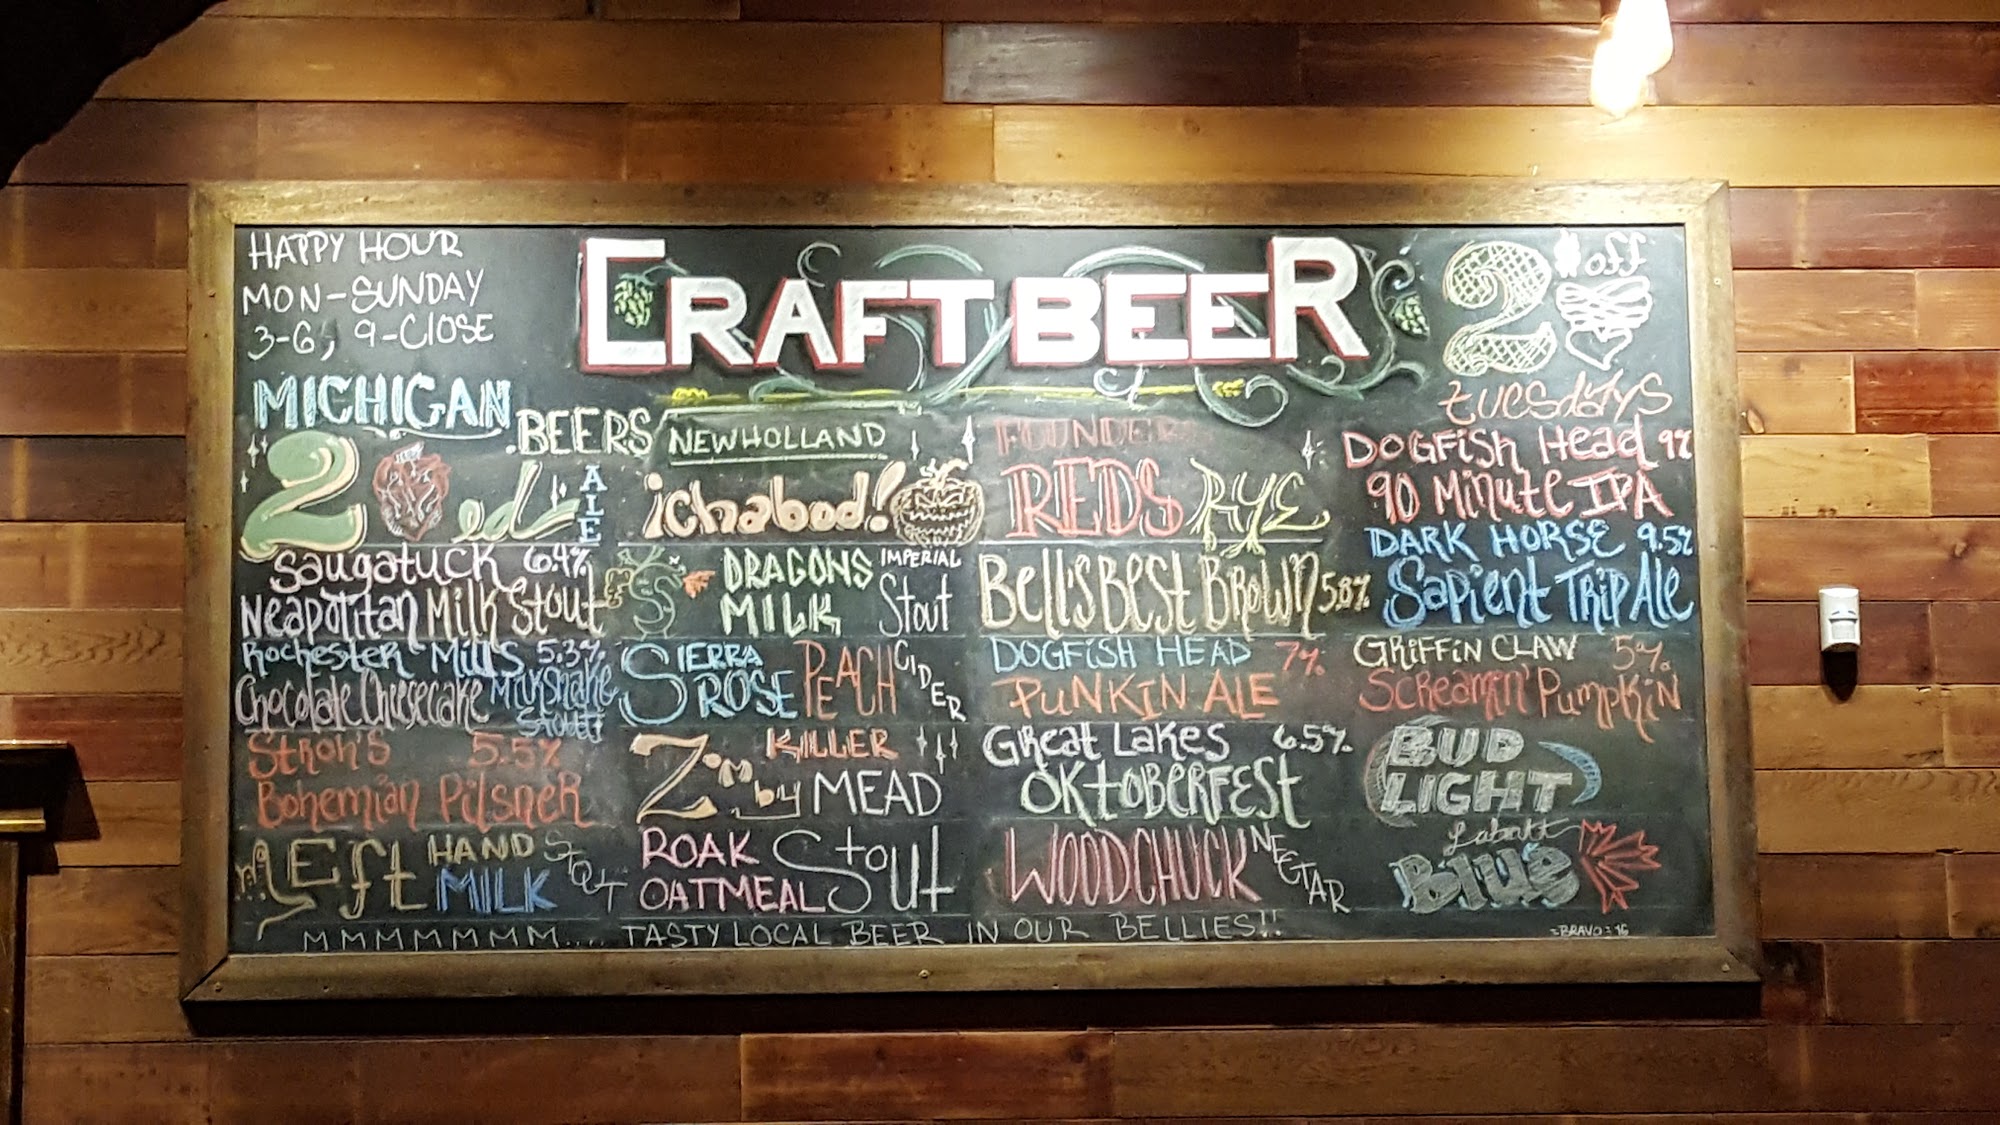 HAPPY HOUR
MON-SUNDAY
3-6, 9-CLOSE
CRAFT BEER
2 $ OFF
TUESDAYS
MICHIGAN
BEERS
2
ALE
Saugatuck 6.4%
Neapolitan Milk Stout
Rochester Mills 5.3%
Chocolate Cheesecake Milkshake
Stout
Stroh's 5.5%
Bohemian Pilsner
Left HAND
MILK STOUT
NEW HOLLAND
ichabod!
DRAGONS IMPERIAL
MILK Stout
SIERRA
ROSE PEACH CIDER
KILLER
Zomby MEAD
ROAK
OATMEAL Stout
FOUNDERS
REDS RYE
Bell's Best Brown 5.8%
DOGFISH HEAD 7%
PUNKIN ALE
Great Lakes 6.5%
OKTOBERFEST
WOODCHUCK NECTAR
DOGFISH Head 9%
90 Minute IPA
DARK HORSE 9.5%
Sapient Trip Ale
GRIFFIN CLAW 5%
Screamin' Pumpkin
BUD
LIGHT
Labatt
Blue
MMMMMMM.... TASTY LOCAL BEER IN OUR BELLIES!!
=BRAVO=16